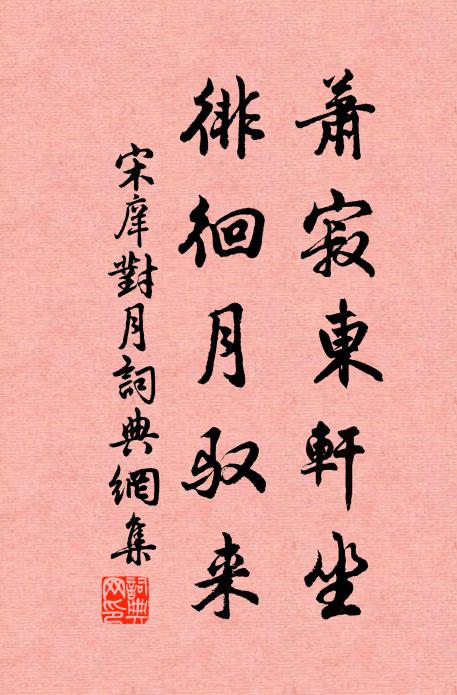 蕭寂東軒坐
徘徊月馭来
宋庠對月詞典網集
詞典網印